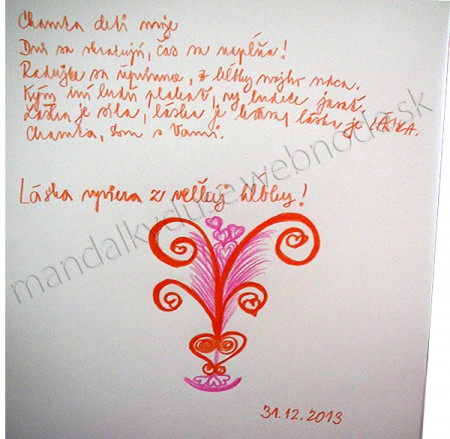 Chamta deti moje
Dni sa skracujú, čas sa napĺňa!
Radujte sa úprimne, z hĺbky svojho srdca.
Kým iní budú plakať, vy budete jasať.
Láska je sila, láska je krása, láska je LÁSKA.
Chamta, som s Vami.
Láska vyviera z veľkej hĺbky!
mandalkyduse.webnode.sk
31.12.2013